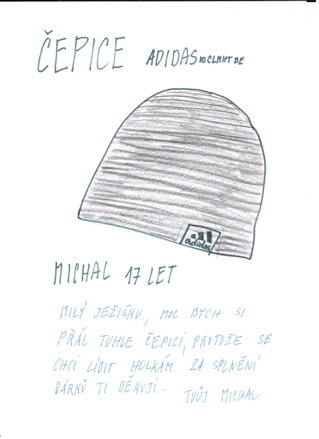 ČEPICE ADIDAS 10CLMHT DE
adidas
MICHAL 17 LET
MILÝ JEŽÍŠKU, MOC BYCH SI
PŘÁL TUHLE ČEPICI, PROTOŽE SE
CHCI LÍBIT HOLKÁM. ZA SPLNĚNÍ
DÁRKŮ TI DĚKUJI.
TVŮJ MICHAL